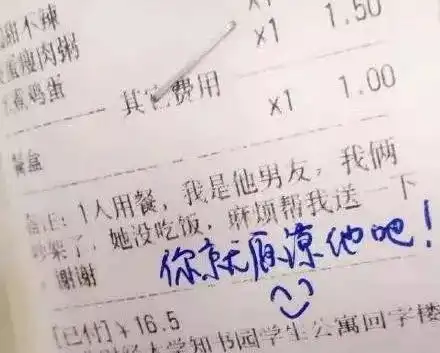 甜不辣
x1 1.50
蛋瘦肉粥
x1
煮鸡蛋
其它费用
x1 1.00
餐盒
备注: 1人用餐, 我是他男友, 我俩
吵架了, 她没吃饭, 麻烦帮我送一下
, 谢谢
你就原谅他吧!
[已付] ¥16.5
大学知书园学生公寓回字楼